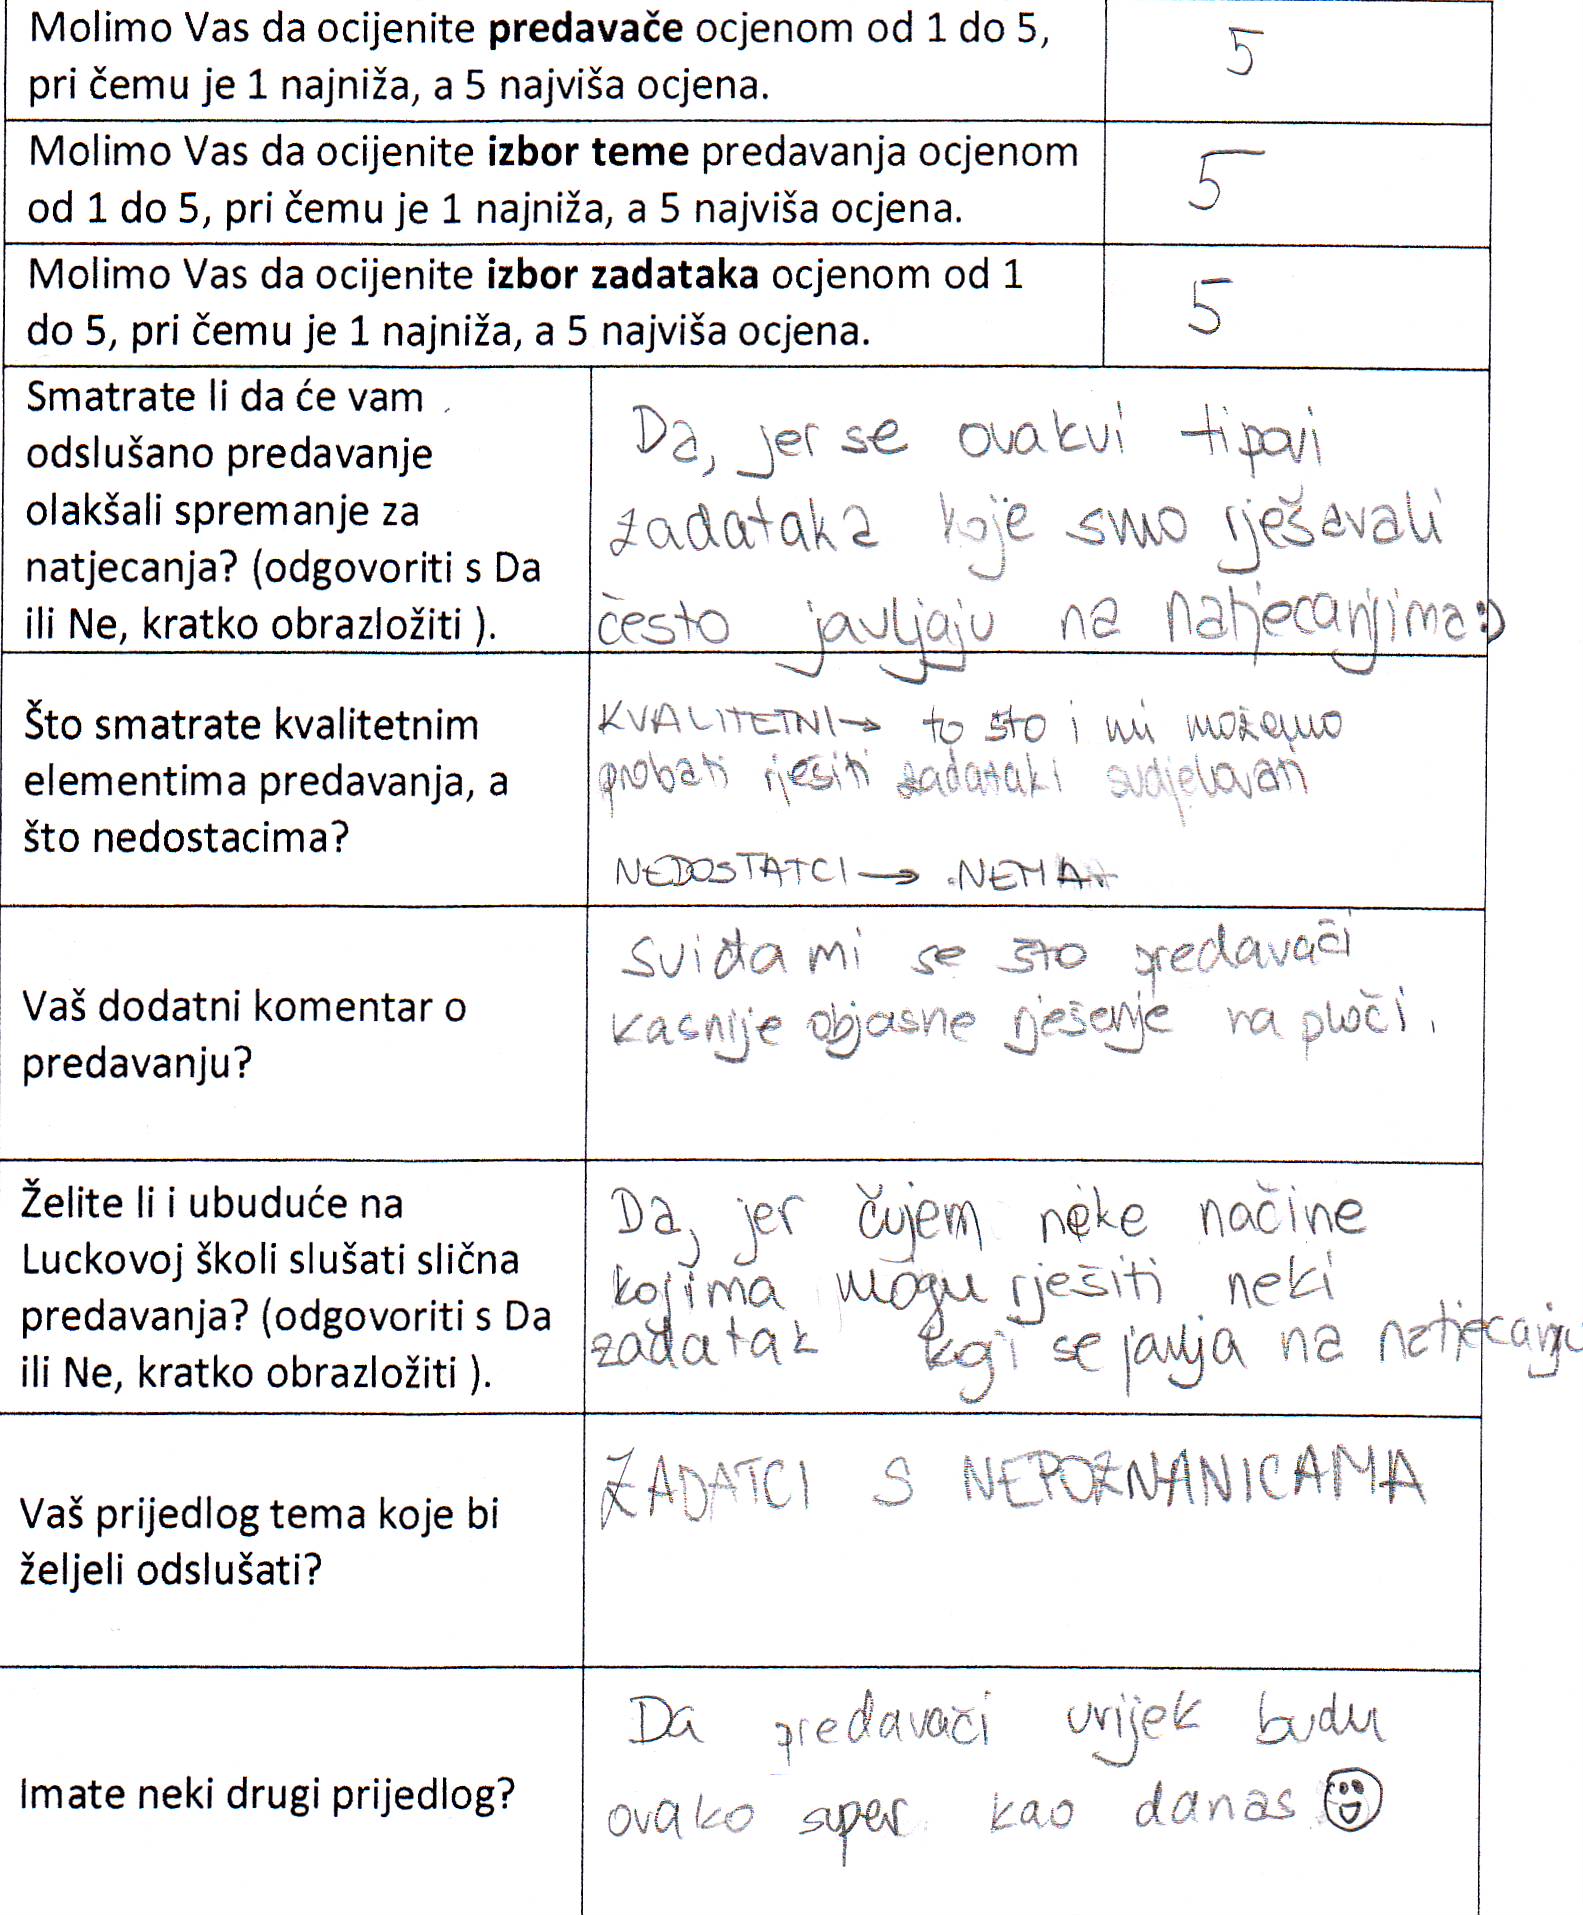 Molimo Vas da ocijenite predavače ocjenom od 1 do 5,
pri čemu je 1 najniža, a 5 najviša ocjena.
5
Molimo Vas da ocijenite izbor teme predavanja ocjenom
od 1 do 5, pri čemu je 1 najniža, a 5 najviša ocjena.
5
Molimo Vas da ocijenite izbor zadataka ocjenom od 1
do 5, pri čemu je 1 najniža, a 5 najviša ocjena.
5
Smatrate li da će vam
odslušano predavanje
olakšali spremanje za
natjecanja? (odgovoriti s Da
ili Ne, kratko obrazložiti ).
Da, jer se ovakvi tipovi
zadataka koje smo rješavali
često javljaju na natjecanjima :)
Što smatrate kvalitetnim
elementima predavanja, a
što nedostacima?
KVALITETNI → to što i mi možemo
probati rješiti zadatak i sudjelovati
NEDOSTATCI → NEMA
Vaš dodatni komentar o
predavanju?
Sviđa mi se što predavači
kasnije objasne rješenje na ploči.
Želite li i ubuduće na
Luckovoj školi slušati slična
predavanja? (odgovoriti s Da
ili Ne, kratko obrazložiti ).
Da, jer čujem neke načine
kojima mogu rješiti neki
zadatak koji se javlja na natjecanju
Vaš prijedlog tema koje bi
željeli odslušati?
ZADATCI S NEPOZNANICAMA
Imate neki drugi prijedlog?
Da predavači uvijek budu
ovako super kao danas